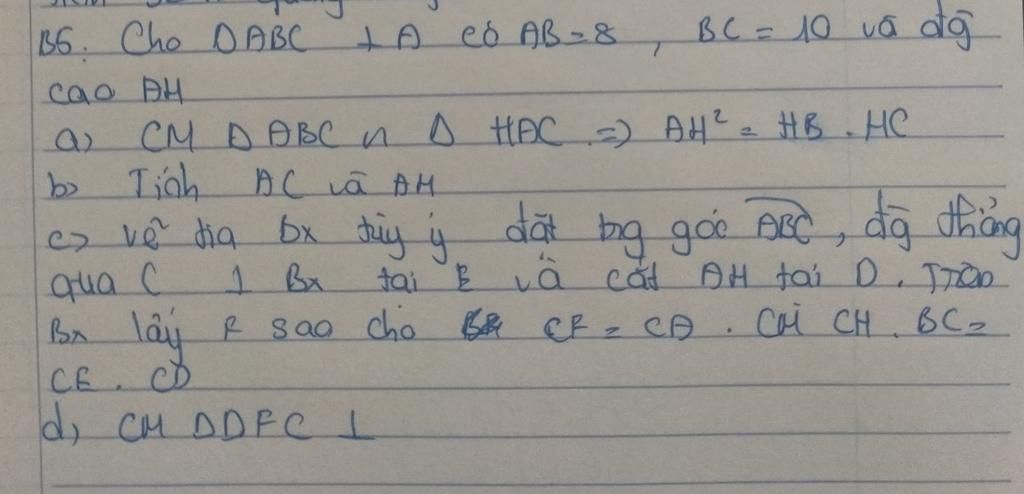 B6. Cho ΔABC ⊥ A có AB = 8, BC = 10 và đg̃
cao AH
a) CM Δ ABC ∽ Δ HAC => AH² = HB . HC
b> Tính AC và AH
c> vẽ tia Bx tùy ý đặt bg góc ABC, đg̃ thẳng
qua C ⊥ Bx tại E và cắt AH tại D. Trên
Bx lấy F sao cho CF = CA . CM CH . BC =
CE . CD
d, CM ΔDFC ⊥